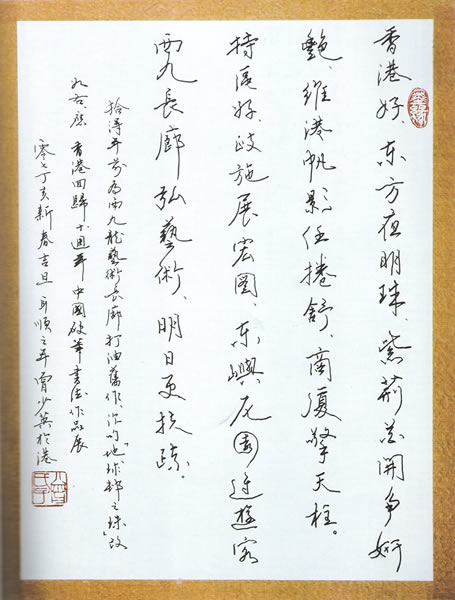 香港好、东方夜明珠、紫荊花開争妍
艷、維港帆影任捲舒、商廈擎天柱。
特區好、政施展宏圖、东嶼尼園迎遊客
西九長廊弘藝術、明日更扶疏。
拾得年前為西九龍藝術長廊打油舊作、地球之珠改
應 香港回歸十週年中國硬筆書法作品展
零七丁亥新春吉旦 耳順之年曾少英於港